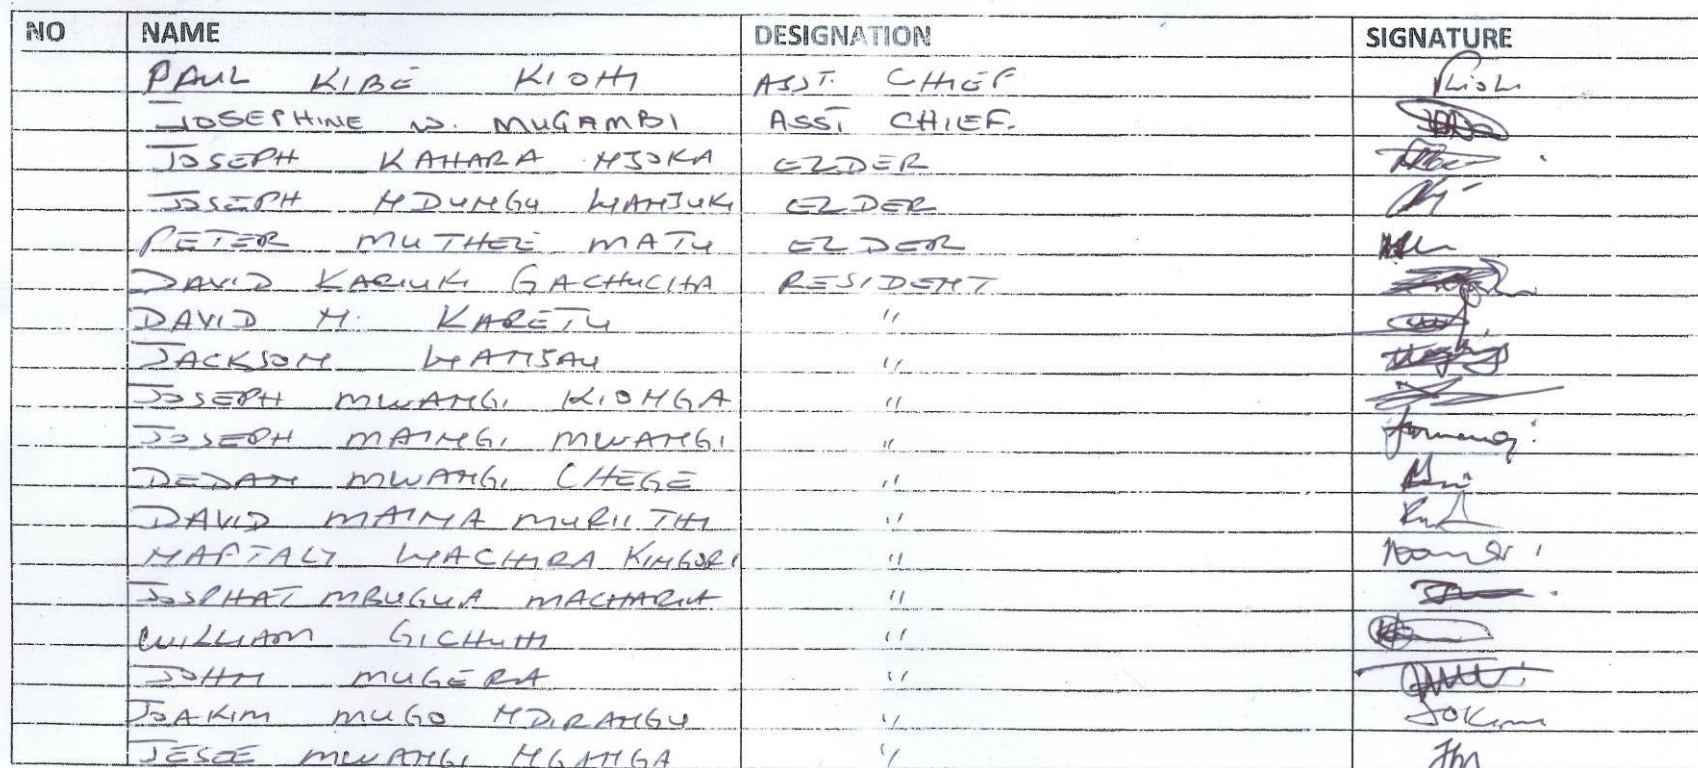 NO NAME DESIGNATION SIGNATURE
PAUL KIBE KIOHI ASST. CHIEF
JOSEPHINE W. MUGAMBI ASST CHIEF.
JOSEPH KAHARA NJOKA ELDER
JOSEPH NDUNGU WANJUKI ELDER
PETER MUTHEE MATU ELDER
DAVID KARIUKI GACHUCHA RESIDENT
DAVID N. KARETU "
JACKSON WANJAU "
JOSEPH MWANGI KIONGA "
JOSEPH MAINGI MWANGI "
DEDAN MWANGI CHEGE "
DAVID MAINA MURIITHI "
NAFTALY WACHIRA KINGORI "
JOSPHAT MBUGUA MACHARIA "
WILLIAM GICHUHI "
JOHN MUGERA "
JOAKIM MUGO NDIRANGU " JOKim
JESEE MWANGI NGANGA "